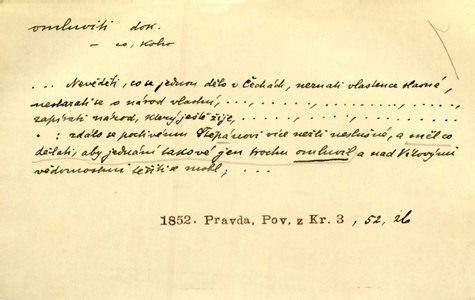 omluviti dok.
– co, koho
... Nevěděti, co se jednou dělo v Čechách, neznati vlastence slavné,
nestarati se o národ vlastní, . , . , . , . , . , . ,
zapírati národ, který ještě žije, . , . , . , . , . , .
. : zdálo se poctivému Štěpánovi více nežli neslušné, a měl co
dělati, aby jednání takové jen trochu omluvil, a nad Vítovými
vědomostmi těšiti se mohl, ...
1852. Pravda, Pov. z Kr. 3, 52, 26